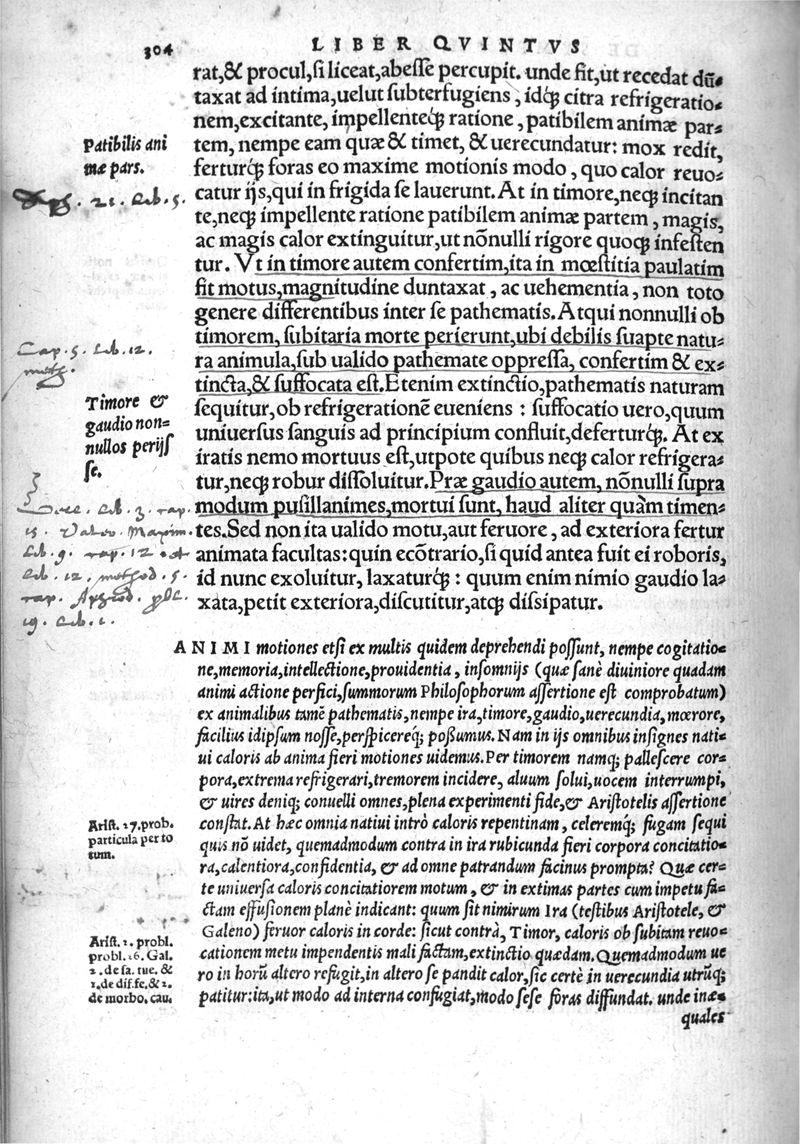 304
LIBER QVINTVS
rat,& procul,si liceat,abesse percupit. unde fit,ut recedat dũ=
taxat ad intima,uelut subterfugiens, idq́; citra refrigeratio=
nem,excitante, impellenteq́; ratione, patibilem animæ par=
Patibilis ani
mæ pars.
tem, nempe eam quæ & timet, & uerecundatur: mox redit,
ferturq́; foras eo maxime motionis modo, quo calor reuo=
catur ijs,qui in frigida se lauerunt. At in timore,neq; incitan
te,neq; impellente ratione patibilem animæ partem, magis,
ac magis calor extinguitur,ut nõnulli rigore quoq; infesten
tur. Vt in timore autem confertim,ita in mœstitia paulatim
fit motus,magnitudine duntaxat, ac uehementia, non toto
genere differentibus inter se pathematis. Atqui nonnulli ob
timorem, subitaria morte perierunt,ubi debilis suapte natu=
ra animula,sub ualido pathemate oppressa, confertim & ex=
tincta,& suffocata est. Etenim extinctio,pathematis naturam
Timore &
gaudio non=
nullos perijs
se.
sequitur,ob refrigerationẽ eueniens : suffocatio uero,quum
uniuersus sanguis ad principium confluit,deferturq́;. At ex
iratis nemo mortuus est,utpote quibus neq; calor refrigera=
tur,neq; robur dissoluitur. Præ gaudio autem, nõnulli supra
modum pusillanimes,mortui sunt, haud aliter quàm timen=
tes. Sed non ita ualido motu,aut feruore, ad exteriora fertur
animata facultas: quin ecõtrario,si quid antea fuit ei roboris,
id nunc exoluitur, laxaturq́; : quum enim nimio gaudio la=
xata,petit exteriora,discutitur,atq; dissipatur.
. 21. Lib. 5.
Cap. 5. Lib. 12.
meth.
Lib. 3. cap.
15. Valer. Maxim.
Lib. 9. cap. 12 et
Lib. 12. method. 5.
19. Lib. 1.
ANIMI motiones etsi ex multis quidem deprehendi possunt, nempe cogitatio=
ne,memoria,intellectione,prouidentia, insomnijs (quæ sanè diuiniore quadam
animi actione perfici,summorum Philosophorum assertione est comprobatum)
ex animalibus tamẽ pathematis,nempe ira,timore,gaudio,uerecundia,mœrore,
facilius idipsum nosse,perspicereq́; possumus. Nam in ijs omnibus insignes nati=
ui caloris ab anima fieri motiones uidemus. Per timorem namq; pallescere cor=
pora,extrema refrigerari,tremorem incidere, aluum solui,uocem interrumpi,
& uires deniq; conuelli omnes,plena experimenti fide,& Aristotelis assertione
Arist. 27.prob.
particula per to
tum.
constat. At hæc omnia natiui intrò caloris repentinam, celeremq́; fugam sequi
quis nõ uidet, quemadmodum contra in ira rubicunda fieri corpora concitatio=
ra,calentiora,confidentia, & ad omne patrandum facinus prompta? Quæ cer=
te uniuersa caloris concitatiorem motum, & in extimas partes cum impetu fa=
ctam effusionem planè indicant: quum sit nimirum Ira (testibus Aristotele, &
Galeno) feruor caloris in corde: sicut contrà, Timor, caloris ob subitam reuo=
Arist. 2. probl.
probl. 26. Gal.
2. de sa. tue. &
1.de dif.fe.& 2.
de morbo. cau.
cationem metu impendentis mali factam,extinctio quædam. Quemadmodum ue
ro in horũ altero refugit,in altero se pandit calor,sic certè in uerecundia utrũq;
patitur:ita,ut modo ad interna confugiat,modo sese foras diffundat. unde inæ=
quales